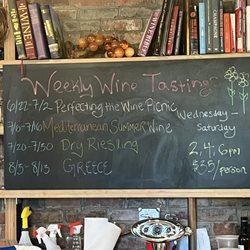 Weekly Wine Tastings
6/27-7/2 Perfecting the Wine Picnic
7/6-7/16 Mediterranean Summer Wine
7/20-7/30 Dry Riesling
8/5-8/13 GREECE
Wednesday -
Saturday
2, 4, 6pm
$35/person
WINE